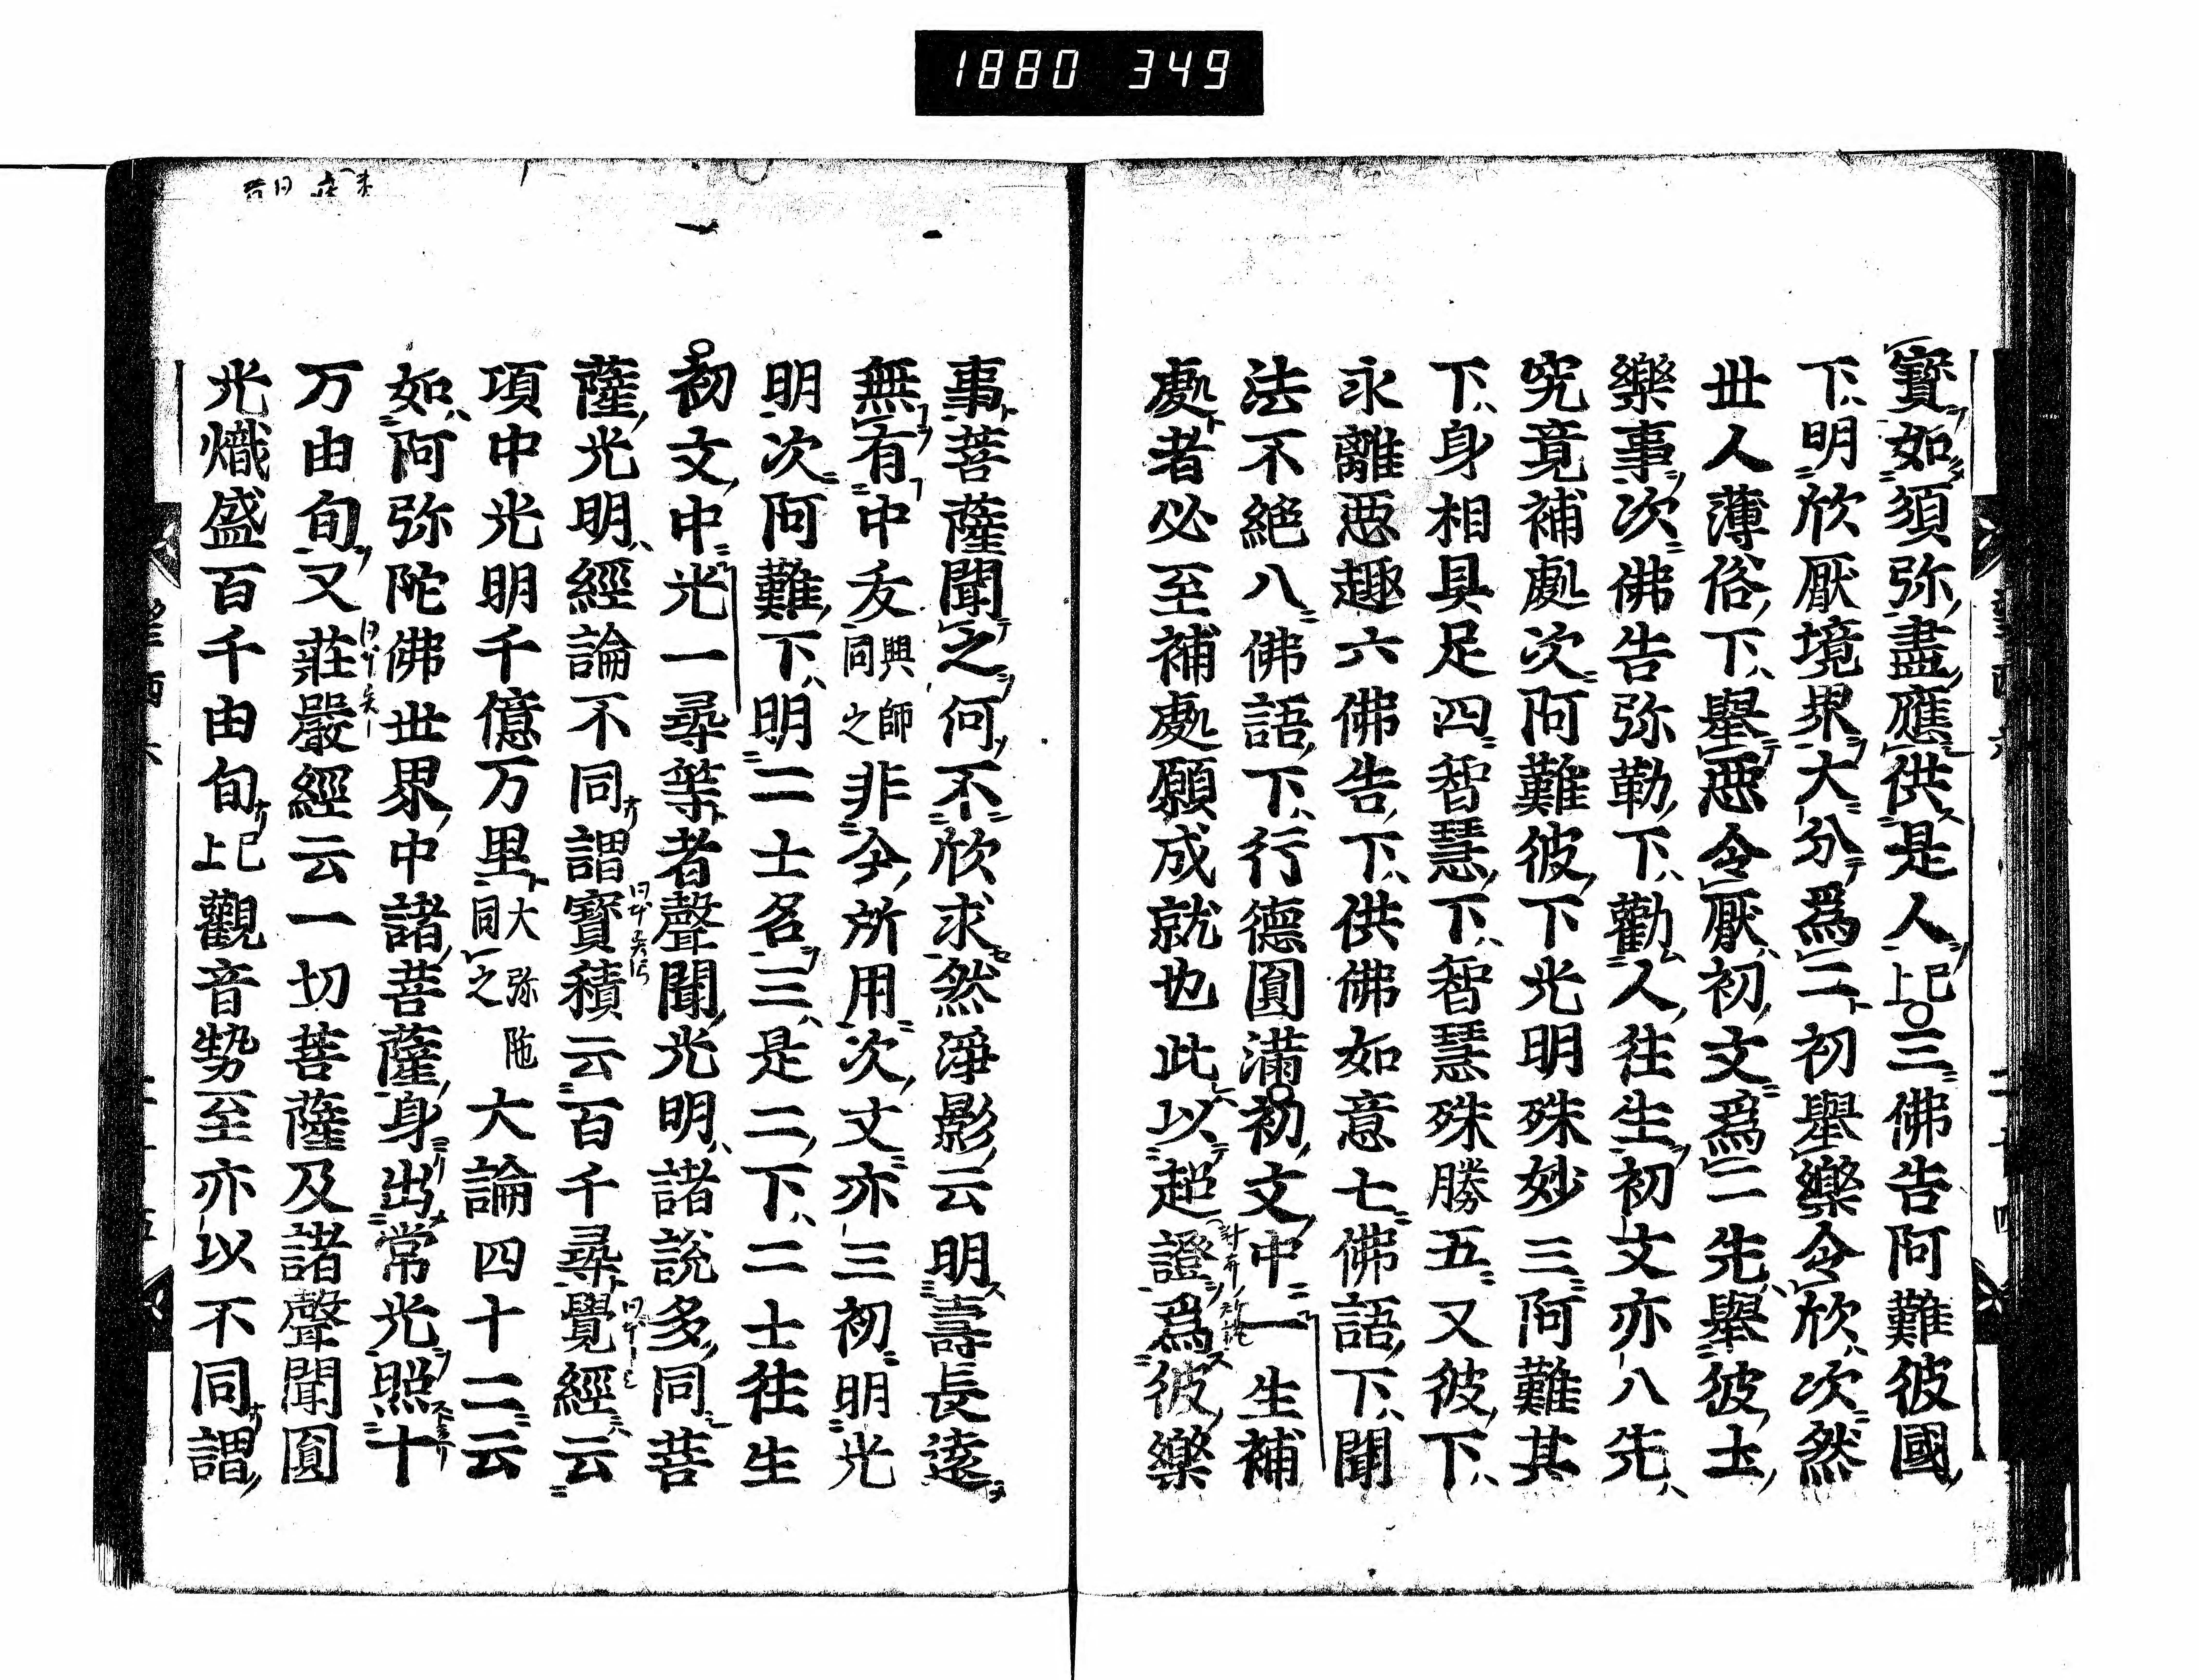 1880 349
寶如須弥盡應供是人上已三佛告阿難彼國
下明欣厭境界大分爲二初舉樂令欣次然
世人薄俗下舉惡令厭初文爲二先舉彼土
樂事次佛告弥勒下勸人往生初文亦八先
究竟補處次阿難彼下光明殊妙三阿難其
下身相具足四智慧下智慧殊勝五又彼下
永離惡趣六佛告下供佛如意七佛語下聞
法不絶八佛語下行德圓滿初文中一生補
處者必至補處願成就也此以超證爲彼樂
事菩薩聞之何不欣求然淨影云明壽長遠
無有中夭興師同之非今所用次文亦三初明光
明次阿難下明二士名三是二下二士往生
初文中光一尋等者聲聞光明諸説多同菩
薩光明經論不同謂寶積云百千尋覺經云
項中光明千億万里大弥陁同之大論四十二云
如阿弥陀佛世界中諸菩薩身出常光照十
万由旬又莊嚴經云一切菩薩及諸聲聞圓
光熾盛百千由旬上已觀音勢至亦以不同謂